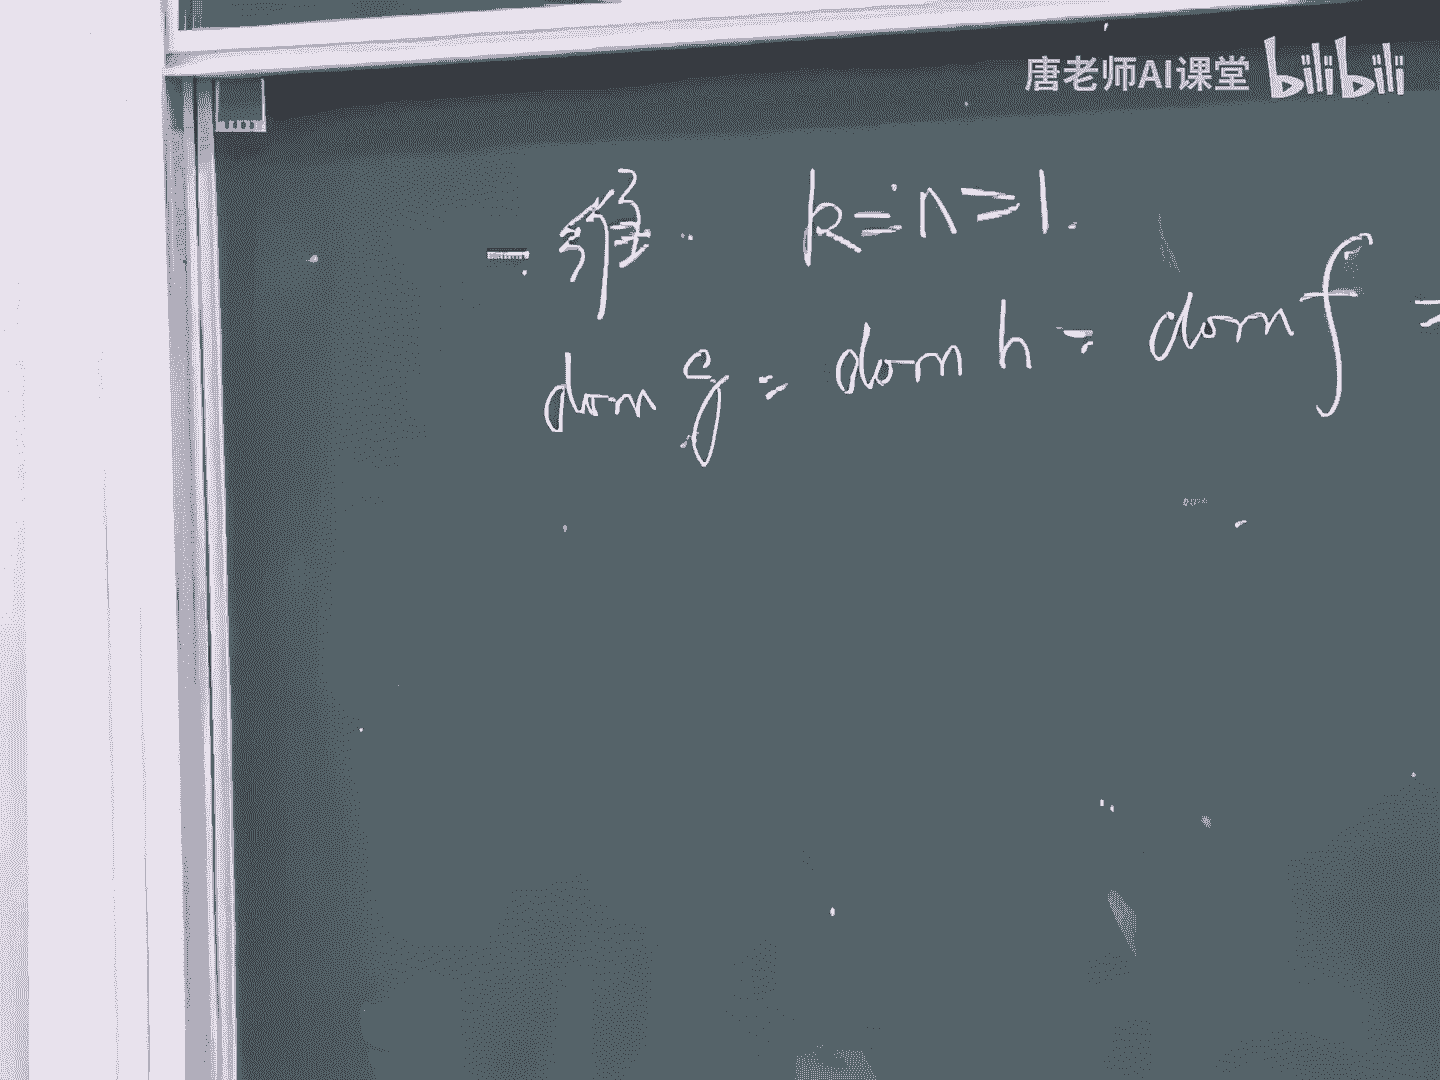 唐老师AI课堂 bilibili
一维. k=n=1.
dom g = dom h = dom f =